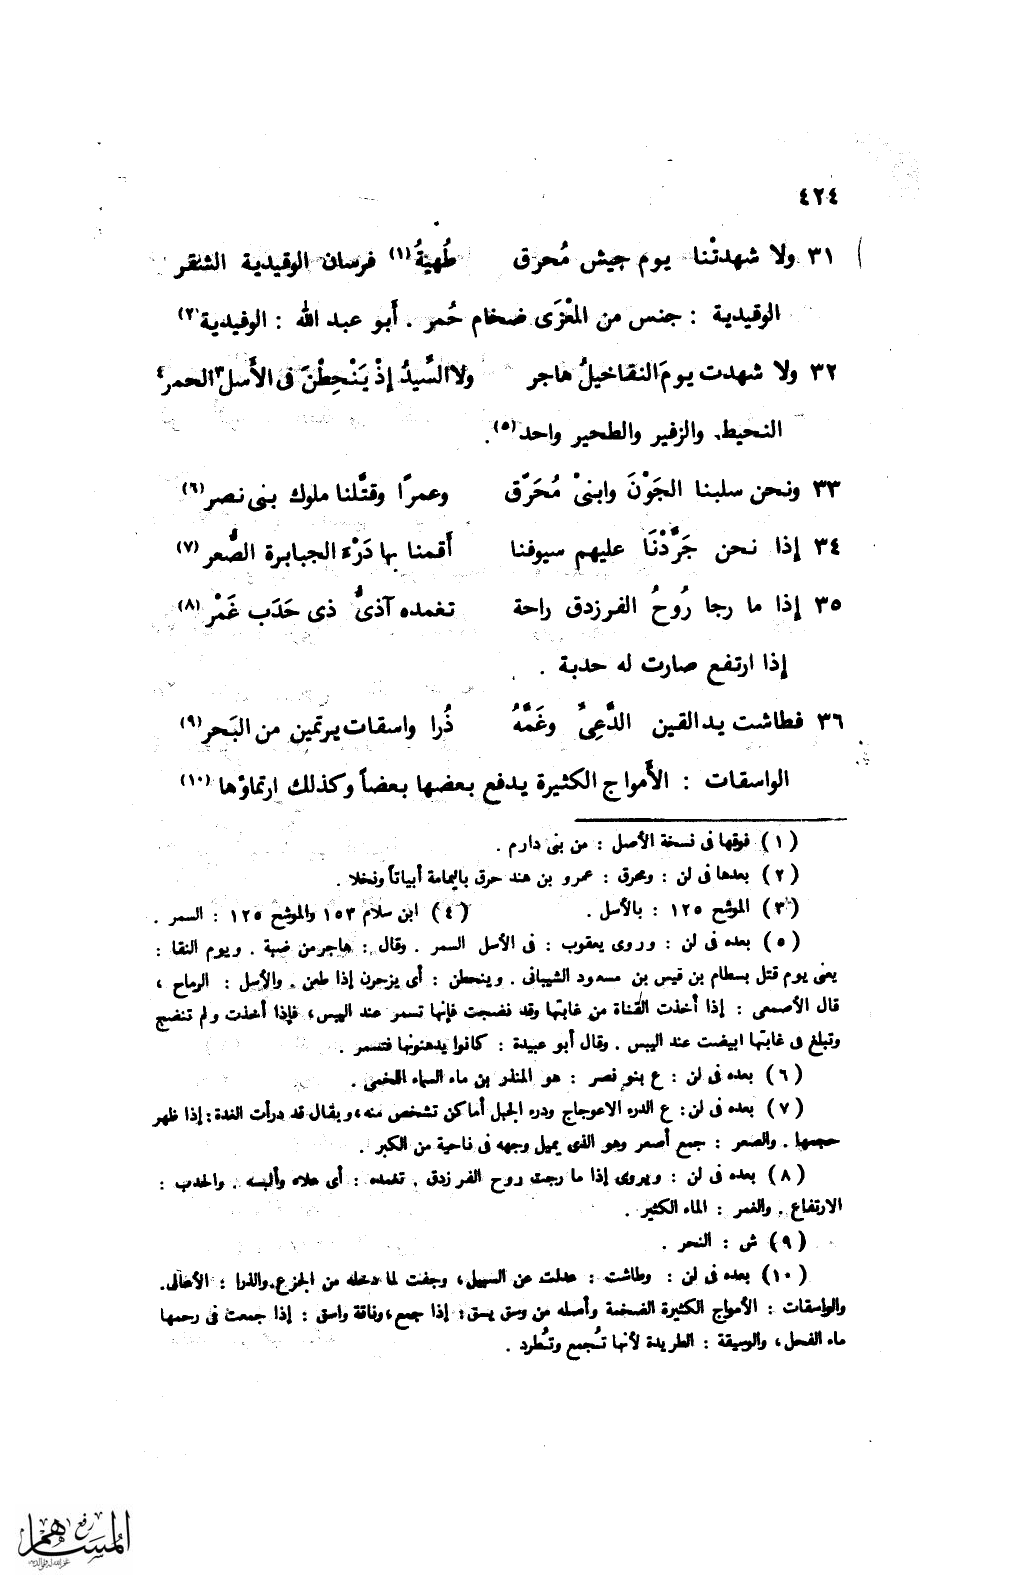 ٤٢٤
٣١ ولا شهدتْنا يوم جيش مُحرق طُهيَّةُ (١) فرسان الوقيدية الشقر
الوقيدية : جنس من المعْزَى ضخام حُمر . أَبو عبد الله : الوفيدية (٢)
٣٢ ولا شهدت يومَ النقا خيلُ هاجر ولا السِّيدُ إذْ يَنْحِطْنَ فى الأَسل ٣ الحمر ٤
النحيط. والزفير والطحير واحد (٥) .
٣٣ ونحن سلبنا الجَوْنَ وابنىْ مُحَرّق وعمرًا وقتَّلنا ملوك بنى نصر (٦)
٣٤ إذا نحن جَرَّدْنَا عليهم سيوفنا أَقمنا بها دَرْءَ الجبابرة الصُّعر (٧)
٣٥ إذا ما رجا رُوحُ الفرزدق راحة تغمده آذىُّ ذى حَدَب غَمْر (٨)
إذا ارتفع صارت له حدبة .
٣٦ فطاشت يد القين الدَّعِىِّ وغَمَّهُ ذُرا واسقات يرتمين من البَحر (٩)
الواسقات : الأَمواج الكثيرة يدفع بعضها بعضاً وكذلك ارتماؤها (١٠)
(١) فوقها فى نسخة الأصل : من بنى دارم .
(٢) بعدها فى لن : ومحرق : عمرو بن هند حرق باليمامة أبياتاً ونخلا .
(٣) الموشح ١٢٥ : بالأسل . (٤) ابن سلام ١٥٣ والموشح ١٢٥ : السمر .
(٥) بعده فى لن : وروى يعقوب : فى الأسل السمر . وقال : هاجر من ضبة . ويوم النقا :
يعنى يوم قتل بسطام بن قيس بن مسعود الشيبانى . وينحطن : أى يزحرن إذا طعن . والأسل : الرماح ،
قال الأصمعى : إذا أخذت القناة من غابتها وقد نضجت فإنها تسمر عند اليبس، فإذا أخذت ولم تنضج
وتبلغ فى غابتها ابيضت عند اليبس . وقال أبو عبيدة : كانوا يدهنونها فتسمر .
(٦) بعده فى لن : ع بنو نصر : هو المنذر بن ماء السماء اللخمى .
(٧) بعده فى لن: ع الدرء الاعوجاج ودرء الجبل أماكن تشخص منه، ويقال قد درأت الغدة: إذا ظهر
حجمها . والصعر : جمع أصعر وهو الذى يميل وجهه فى ناحية من الكبر .
(٨) بعده فى لن : ويروى إذا ما رجت روح الفرزدق . تغمده : أى علاه وألبسه . والحدب :
الارتفاع . والغمر : الماء الكثير .
(٩) ش : النحر .
(١٠) بعده فى لن : وطاشت : عدلت عن السبيل، وجفت لما دخله من الجزع. والذرا : الأعالى.
والواسقات : الأمواج الكثيرة الضخمة وأصله من وسق يسق : إذا جمع، وناقة واسق : إذا جمعت فى رحمها
ماء الفحل، والوسيقة : الطريدة لأنها تُجمع وتُطرد .
رفع
المساهم